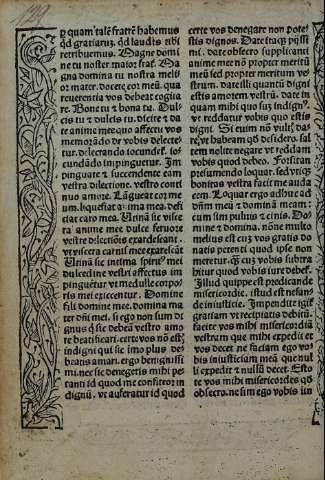 129
py quam talẽ fratrẽ habemus
qđ gratiarũ. qđ laudis tibi
retribuemus. Magne domi
ne tu noster maior fraẽ. Ma
gna domina tu nostra meli
or mater. docete cor meũ. qua
reuerentia vos debeat cogita
re. Bone tu & bona tu. Dul
cis tu & dulcis tu. dicite & da
te anime mee quo affectu vos
memorãdo de vobis delecte
tur. delectando iocundeẽ. io
cundãdo impinguetur. Im
pinguate & succendite eam
vestra dilectione. vestro conti
nuo amore. Lãgueat cor me
um. liquefiat anima mea. defi
ciat caro mea. Utinã sic visce
ra anime mee dulce feruore
vestre dilectiõis exardescant.
vt viscera carnis mee exarescãt
Utinã sic intima spirit⁹ mei
dulcedine vestri affectus im
pinguẽtur vt medulle corpo
ris mei exiccentur. Domine
fili domine mee. domina ma
ter dñi mei. si ego non sum di
gnus q̃ sic debeã vestro amo
te beatificari. certe vos nõ estis
indigni qui sic imo plus de
beatis amari. ergo benignissi
mi. nec sic denegetis mihi pe
tanti id quod me confiteor in
dignũ. vt auferatur id quod
certe vos denegare non pote
stis dignos. Date itaq; pijssi
mi. date obsecro supplicanti
anime mee nõ propter meritũ
meũ sed propter meritum ve
strum. date illi quantũ digni
estis amotem vestrũ. date in
quam mihi quo suz indign⁹.
vt reddatur vobis quo estis
digni. Si enim nõ vultis das
re. vt habeam qđ desidero. sal
tem nolite negare vt reddam
vobis quod debeo. Forsitan
presumendo loquar. sed vtiq;
bonitas vestra facit me auda
cem. Loquar ergo adhuc ad
dñm meum & dominã meam:
cum sim puluis & cinis. Do
mine & domina. nõne multo
melius est cũz vos gratis do
natis petenti quod ipse non
meretur. q̃ cũz vobis subtra
hitur quod vobis iure debeẽ.
Illud quippe est predicande
misericordie. istud est nefan
de iniusticie. Impendite igiẽ
gratiam vt recipiatis debitũ.
facite vos mihi misericordiã
vestram que mihi expedit et
vos decet. ne faciam ego vo
bis iniusticiam meã que nul
li expedit & nullũ decet. Esto
te vos mihi misericordes qđ
obsecro. ne sim ego vobis in